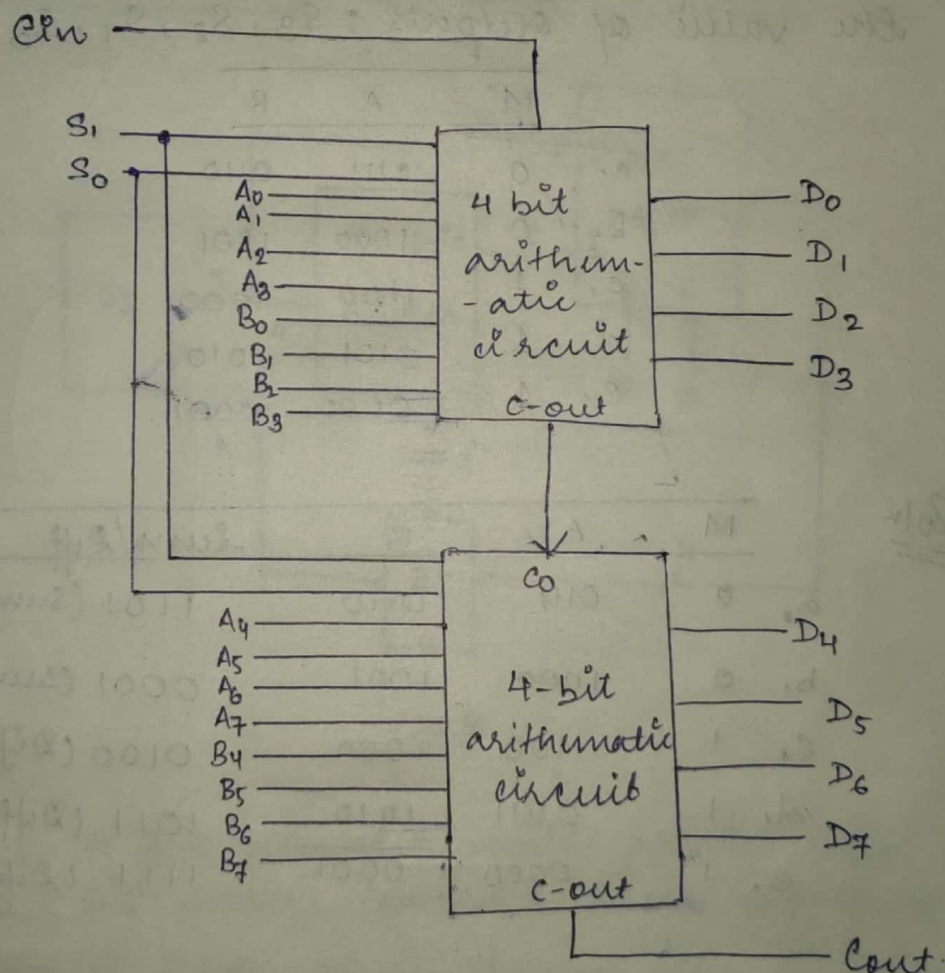 Cin
S1
S0
A0
A1
A2
A3
B0
B1
B2
B3
4 bit
arithem-
-atic
circuit
C-out
D0
D1
D2
D3
C0
A4
A5
A6
A7
B4
B5
B6
B7
4-bit
arithematic
circuit
C-out
D4
D5
D6
D7
Cout